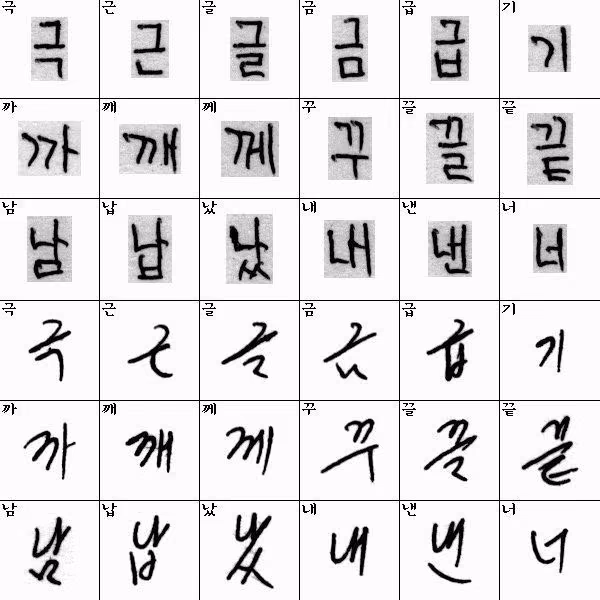 극 근 글 금 급 기
극 근 글 금 급 기
까 깨 께 꾸 끌 끝
까 깨 께 꾸 끌 끝
남 납 났 내 낸 너
남 납 났 내 낸 너
극 근 글 금 급 기
극 근 글 금 급 기
까 깨 께 꾸 끌 끝
까 깨 께 꾸 끌 끝
남 납 났 내 낸 너
남 납 났 내 낸 너